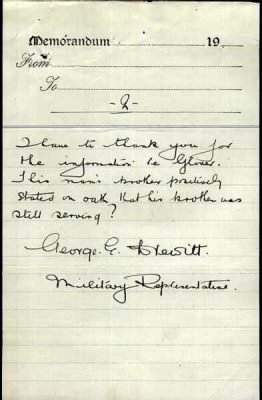 Memorandum 19
From
To
-2-
I have to thank you for
the information re Glover.
This man's brother positively
stated on oath that his brother was
still serving?
George. E. Hewitt.
Military Representative.